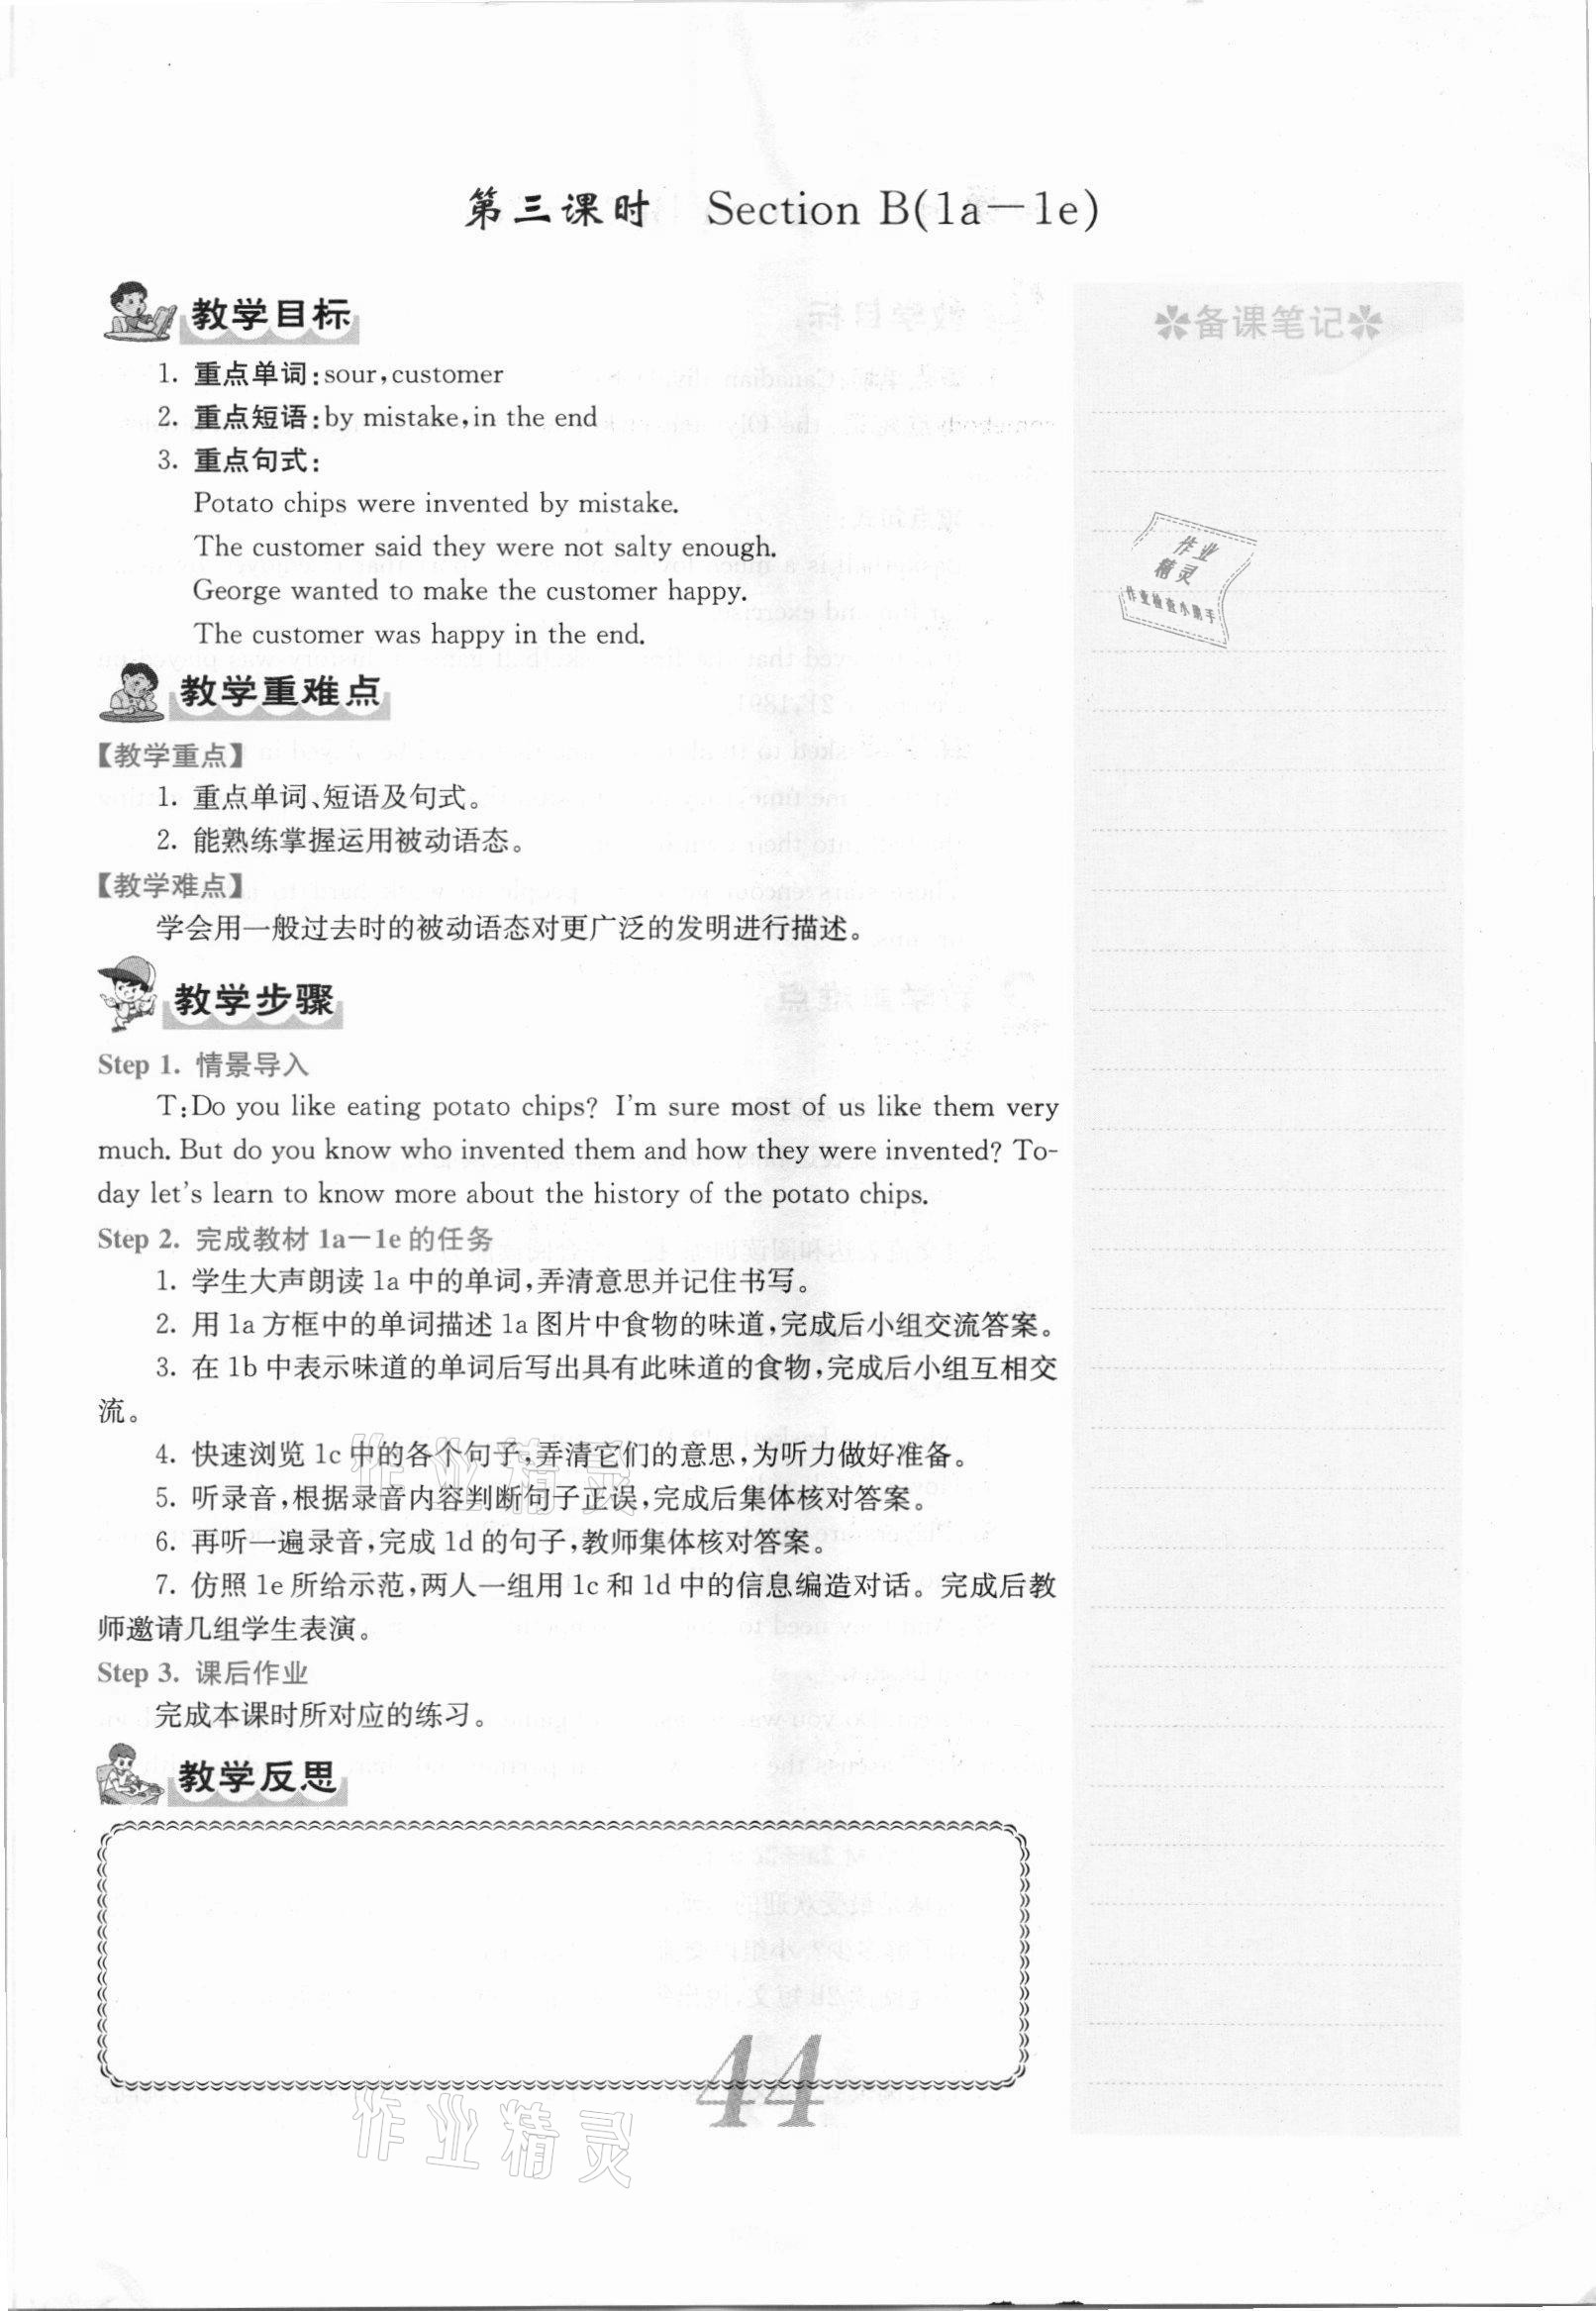 第三课时　Section B(1a—1e)
教学目标
✽备课笔记✽
1. 重点单词:sour,customer
2. 重点短语:by mistake,in the end
3. 重点句式:
Potato chips were invented by mistake.
The customer said they were not salty enough.
George wanted to make the customer happy.
The customer was happy in the end.
作业
精灵
作业检查小助手
教学重难点
【教学重点】
1. 重点单词、短语及句式。
2. 能熟练掌握运用被动语态。
【教学难点】
学会用一般过去时的被动语态对更广泛的发明进行描述。
教学步骤
Step 1. 情景导入
T:Do you like eating potato chips? I'm sure most of us like them very
much. But do you know who invented them and how they were invented? To-
day let's learn to know more about the history of the potato chips.
Step 2. 完成教材 1a—1e 的任务
1. 学生大声朗读 1a 中的单词,弄清意思并记住书写。
2. 用 1a 方框中的单词描述 1a 图片中食物的味道,完成后小组交流答案。
3. 在 1b 中表示味道的单词后写出具有此味道的食物,完成后小组互相交
流。
4. 快速浏览 1c 中的各个句子,弄清它们的意思,为听力做好准备。
5. 听录音,根据录音内容判断句子正误,完成后集体核对答案。
6. 再听一遍录音,完成 1d 的句子,教师集体核对答案。
7. 仿照 1e 所给示范,两人一组用 1c 和 1d 中的信息编造对话。完成后教
师邀请几组学生表演。
Step 3. 课后作业
完成本课时所对应的练习。
作业精灵
教学反思
44
作业精灵